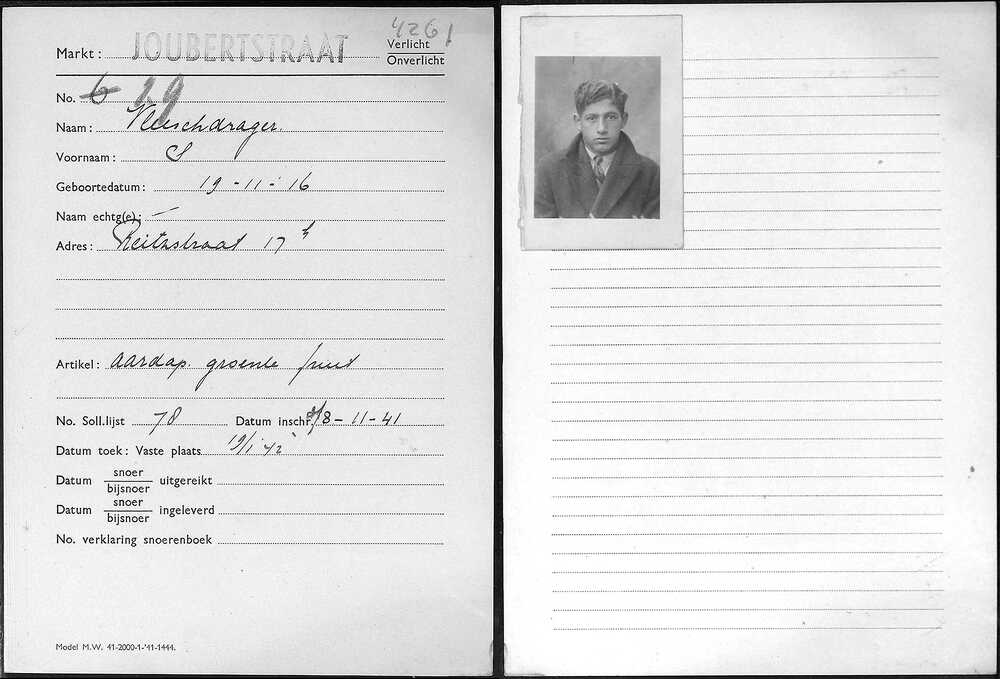 4261
Markt: JOUBERTSTRAAT Verlicht
Onverlicht
No. 6 29
Naam: Vleeschdrager.
Voornaam: S
Geboortedatum: 19-11-16
Naam echtg(e): —
Adres: Reitzstraat 17 h
Artikel: aardap. groente fruit
No. Soll.lijst 78 Datum inschr. 8-11-41
Datum toek: Vaste plaats 19/1 42
Datum snoer
bijsnoer uitgereikt
Datum snoer
bijsnoer ingeleverd
No. verklaring snoerenboek
Model M.W. 41-2000-1-'41-1444.